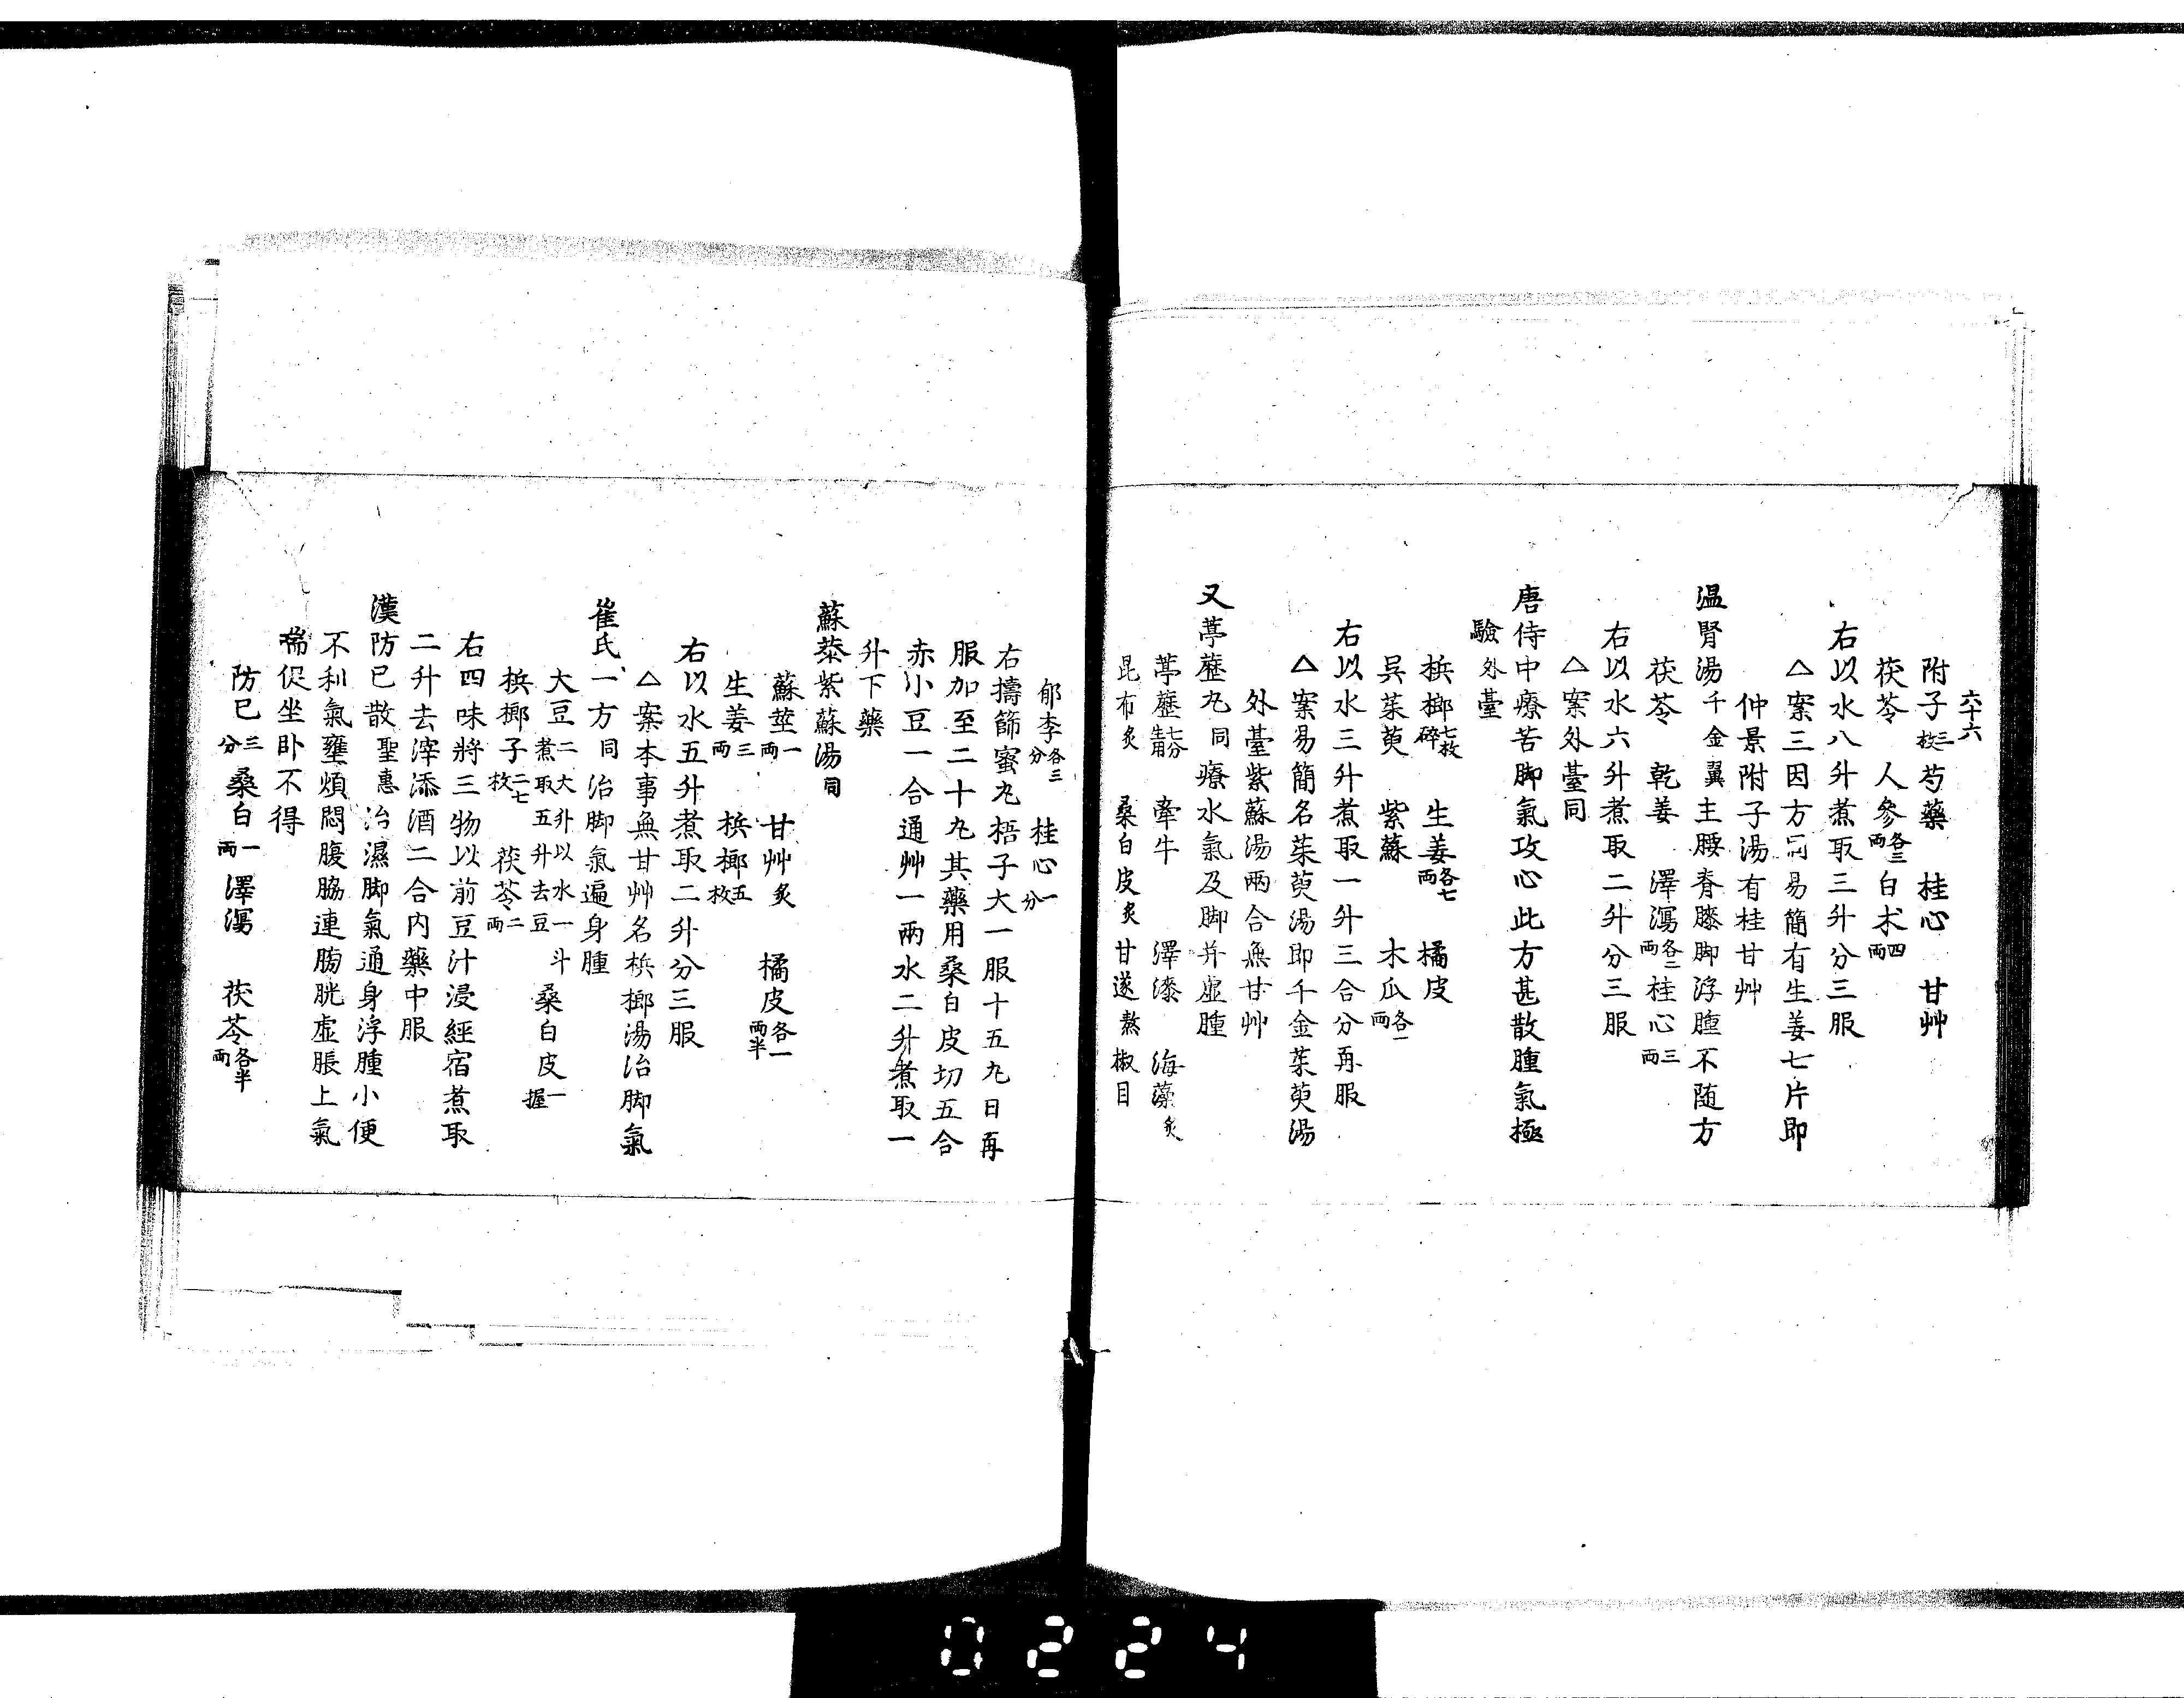 六十六
附子二枚 芍藥 桂心 甘艸
茯苓 人參各三兩 白朮四兩
右以水八升煮取三升分三服
△案三因方同易簡有生姜七片即
仲景附子湯有桂甘艸
温腎湯千金翼主腰脊膝脚浮腫不随方
茯苓 乾姜 澤瀉各二兩 桂心三兩
右以水六升煮取二升分三服
△案外臺同
唐侍中療苦脚氣攻心此方甚散腫氣極
驗外臺
梹榔七枚碎 生姜各七兩 橘皮
呉茱萸 紫蘇 木瓜各一兩
右以水三升煮取一升三合分再服
△案易簡名茱萸湯即千金茱萸湯
外臺紫蘇湯兩合無甘艸
又葶藶丸同療水氣及脚并虚腫
葶藶七分 牽牛 澤漆 海藻炙
昆布炙 桑白皮炙 甘遂熬 椒目
郁李各三分 桂心一分
右擣篩蜜丸梧子大一服十五丸日再
服加至二十丸其藥用桑白皮切五合
赤小豆一合通艸一兩水二升煮取一
升下藥
蘇恭紫蘇湯同
蘇莖一兩 甘艸炙 橘皮各一兩半
生姜三兩 梹榔五枚
右以水五升煮取二升分三服
△案本事無甘艸名梹榔湯治脚氣
崔氏一方同治脚氣遍身腫
大豆二大升以水一斗煮取五升去豆 桑白皮一握
梹榔子二七枚 茯苓二兩
右四味將三物以前豆汁浸經宿煮取
二升去滓添酒二合内藥中服
漢防已散聖惠治濕脚氣通身浮腫小便
不利氣壅煩悶腹脇連膀胱虚脹上氣
喘促坐卧不得
防已三分 桑白一兩 澤瀉 茯苓各半兩
0224